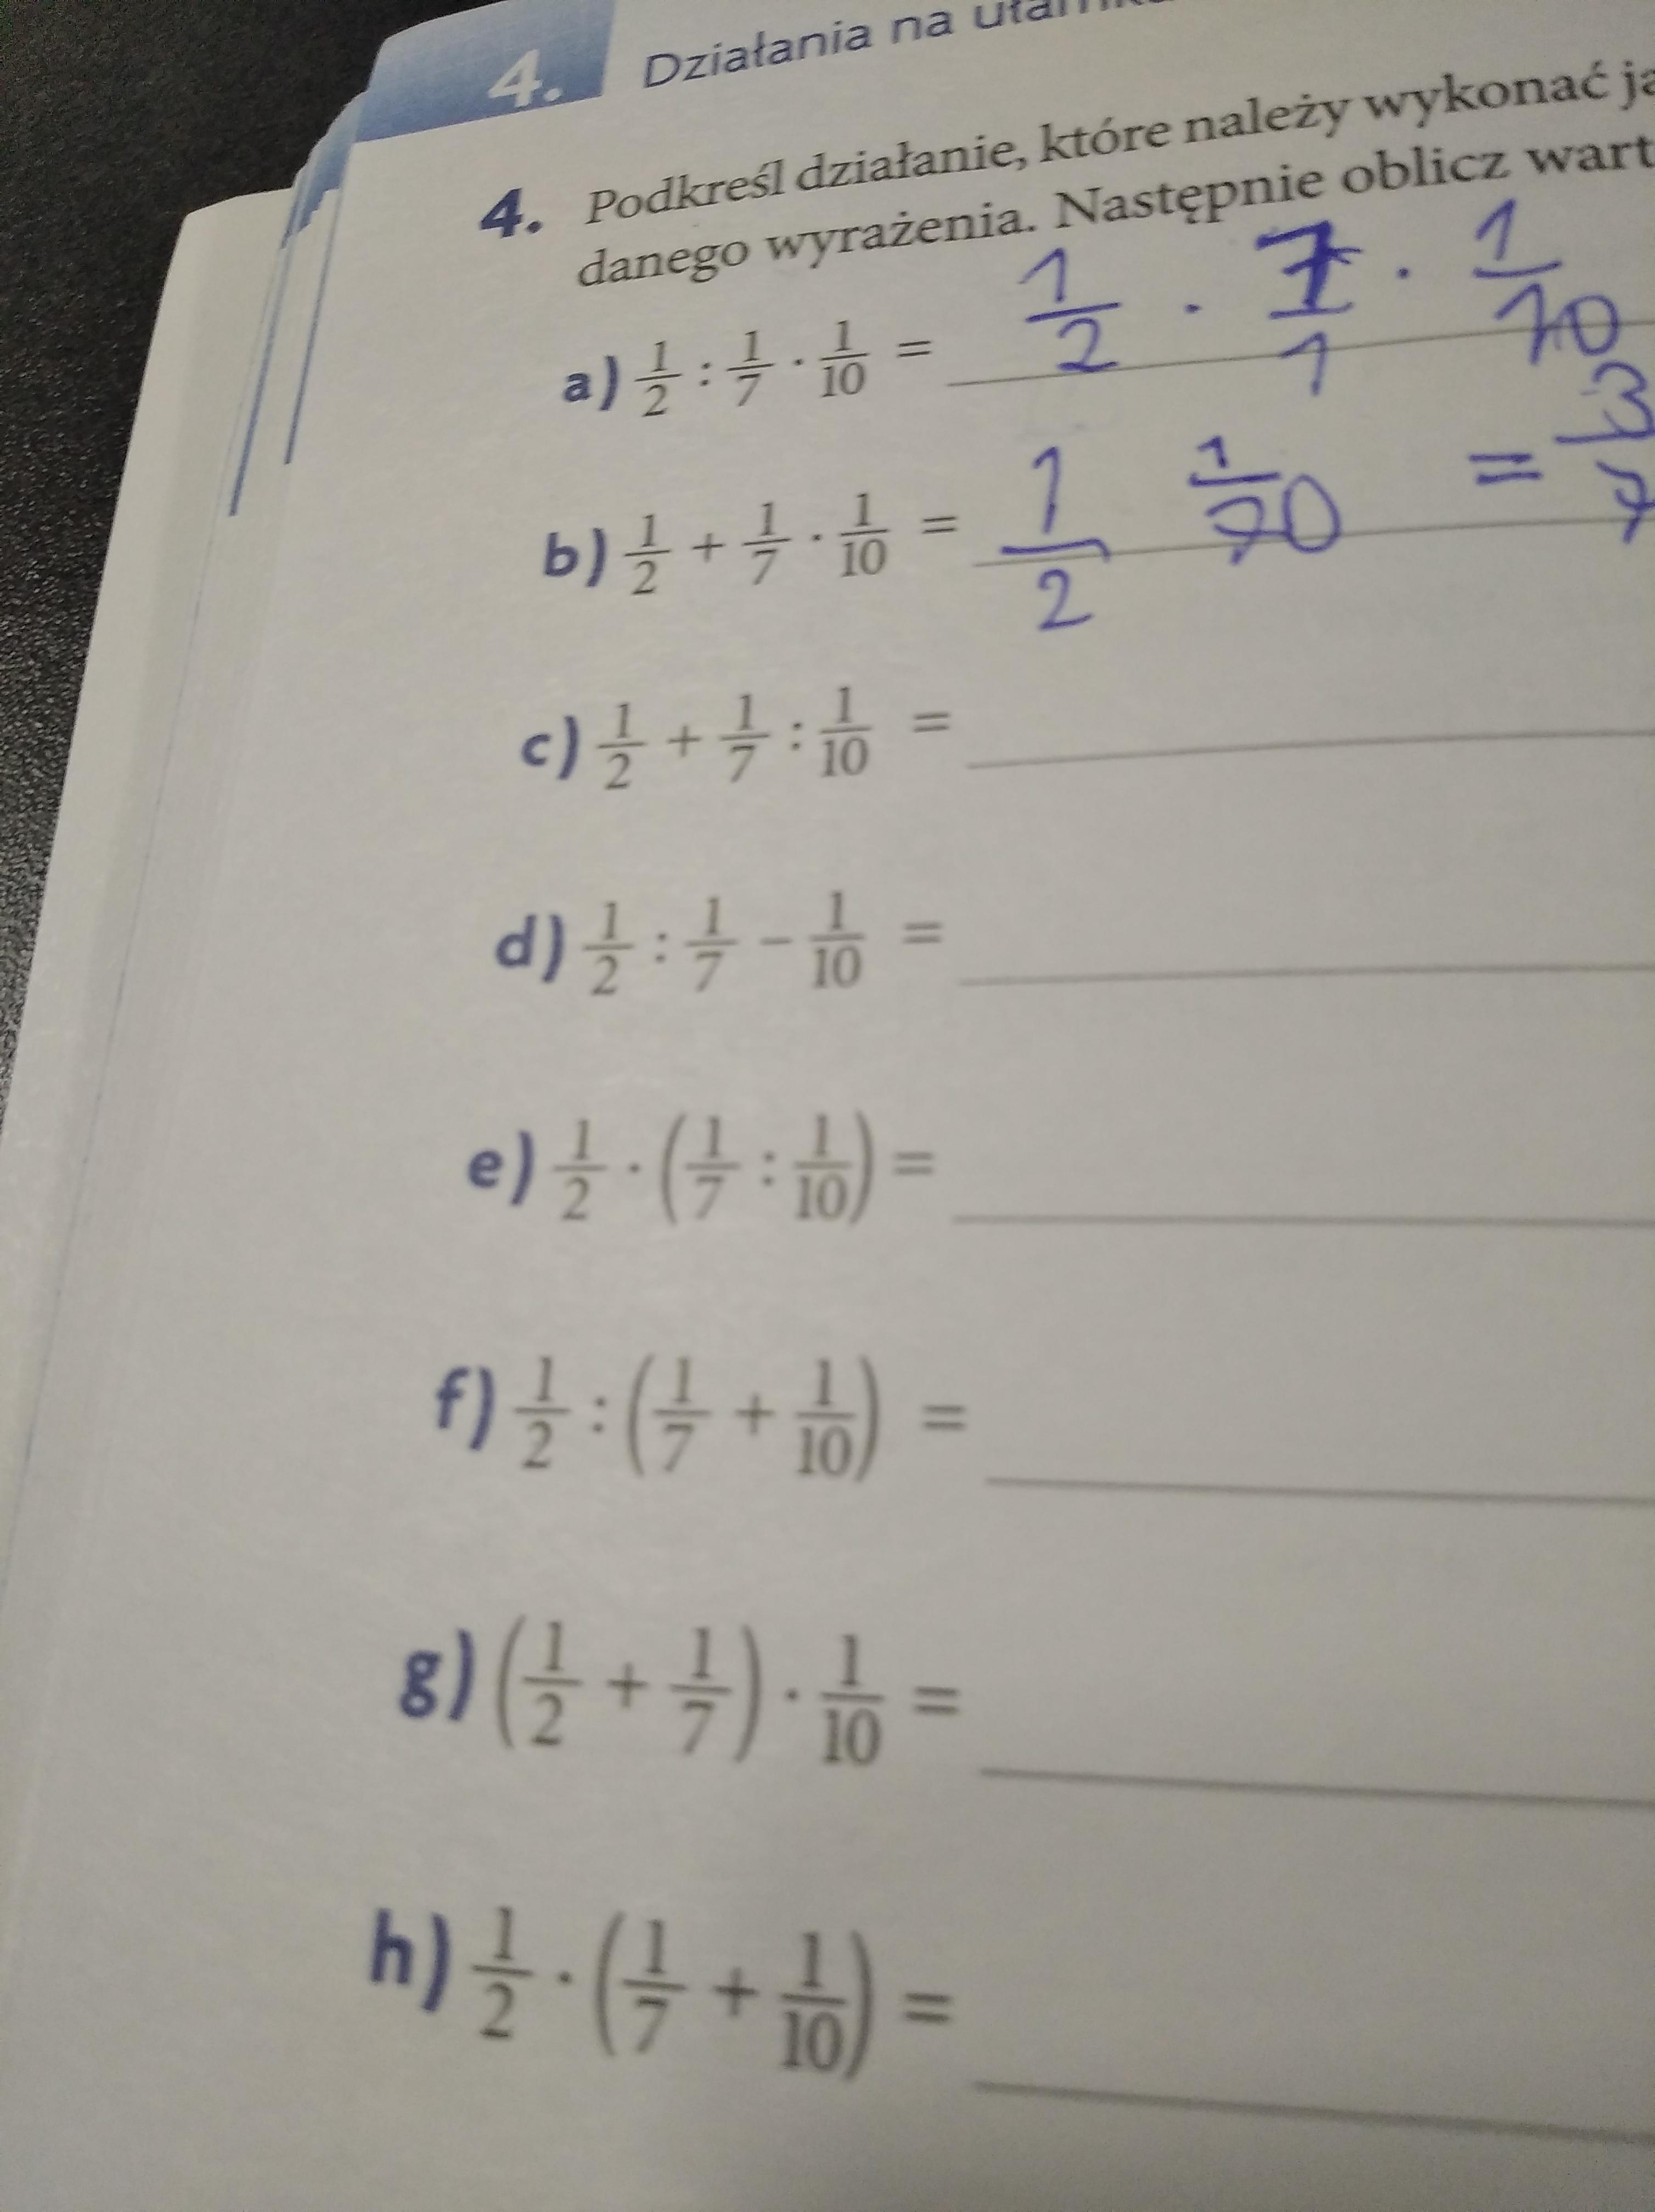 4. Działania na
4. Podkreśl działanie, które należy wykonać
danego wyrażenia. Następnie oblicz
a) 1/2 : 1/7 · 1/10 = 1/2 · 7/1 · 1/10
b) 1/2 + 1/7 · 1/10 = 1/2 1/70 = 3/7
c) 1/2 + 1/7 : 1/10 =
d) 1/2 : 1/7 - 1/10 =
e) 1/2 · (1/7 : 1/10) =
f) 1/2 : (1/7 + 1/10) =
g) (1/2 + 1/7) · 1/10 =
h) 1/2 · (1/7 + 1/10) =